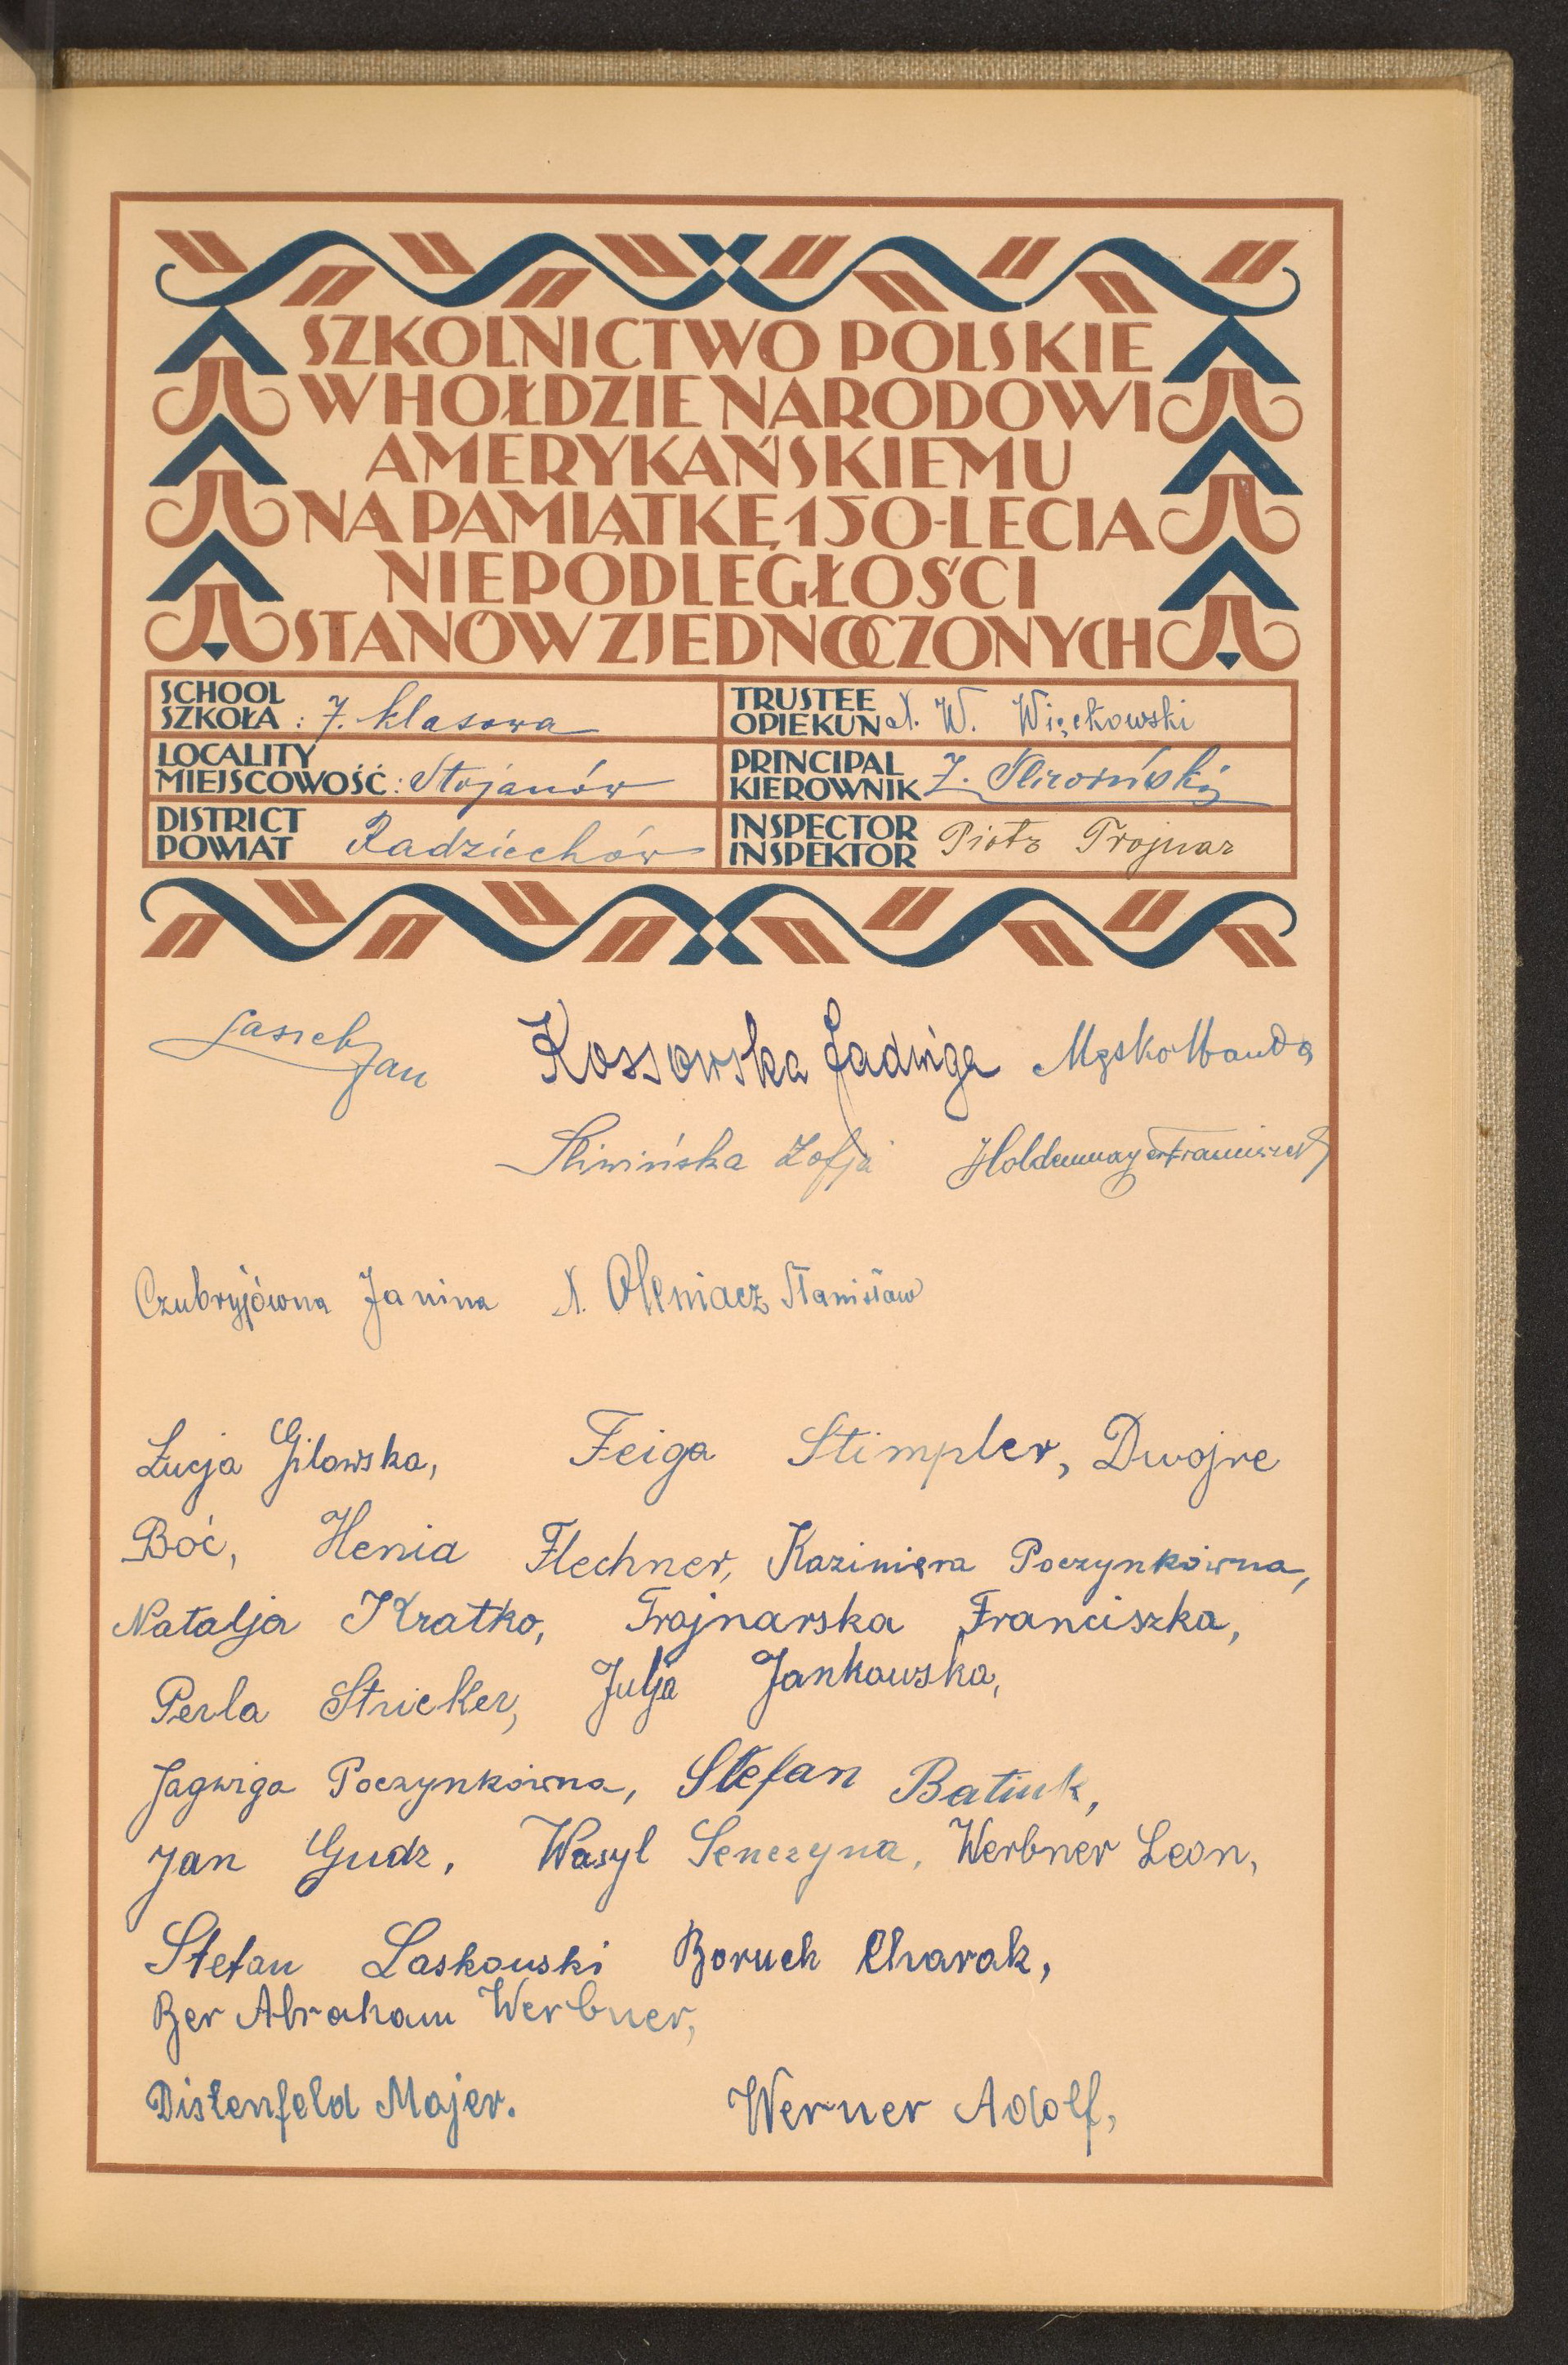 SZKOLNICTWO POLSKIE
W HOŁDZIE NARODOWI
AMERYKAŃSKIEMU
NA PAMIĄTKĘ 150-LECIA
NIEPODLEGŁOŚCI
STANÓW ZJEDNOCZONYCH
SCHOOL
SZKOŁA : 7. klasowa
TRUSTEE
OPIEKUN X. W. Więckowski
LOCALITY
MIEJSCOWOŚĆ : Stojanów
PRINCIPAL
KIEROWNIK Z.
DISTRICT
POWIAT Radziechów
INSPECTOR
INSPEKTOR Piotr Trojnar
Lasiek Jan
Kossowska Jadwiga
Męsko Wanda
Śliwińska Zofja
Holdenmayer Franciszek
Czubryjówna Janina X. Oleniacz Stanisław
Łucja Gilowska, Feiga Stimpler, Dwojre
Boć, Henia Flechner, Kazimiera Poczynkówna,
Natalja Kratko, Trojnarska Franciszka,
Perla Stricker, Julja Jankowska,
Jagwiga Poczynkówna, Stefan Batiuk,
Jan Gudz, Wasyl Senczyna, Werbner Leon,
Stefan Laskowski Boruch Charak,
Ber Abraham Werbner,
Distenfeld Majer. Werner Adolf,